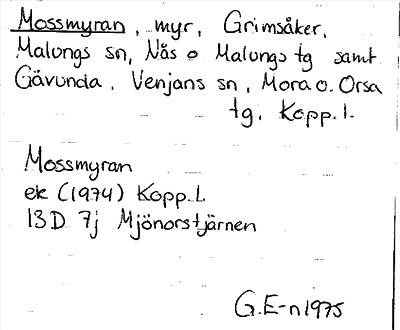 Mossmyran, myr, Grimsåker,
Malungs sn, Nås o Malungs tg samt
Gävunda, Venjans sn, Mora o. Orsa
tg, Kopp. l.
Mossmyran
ek (1974) Kopp. L
13D 7j Mjönorstjärnen
G.E-n 1975